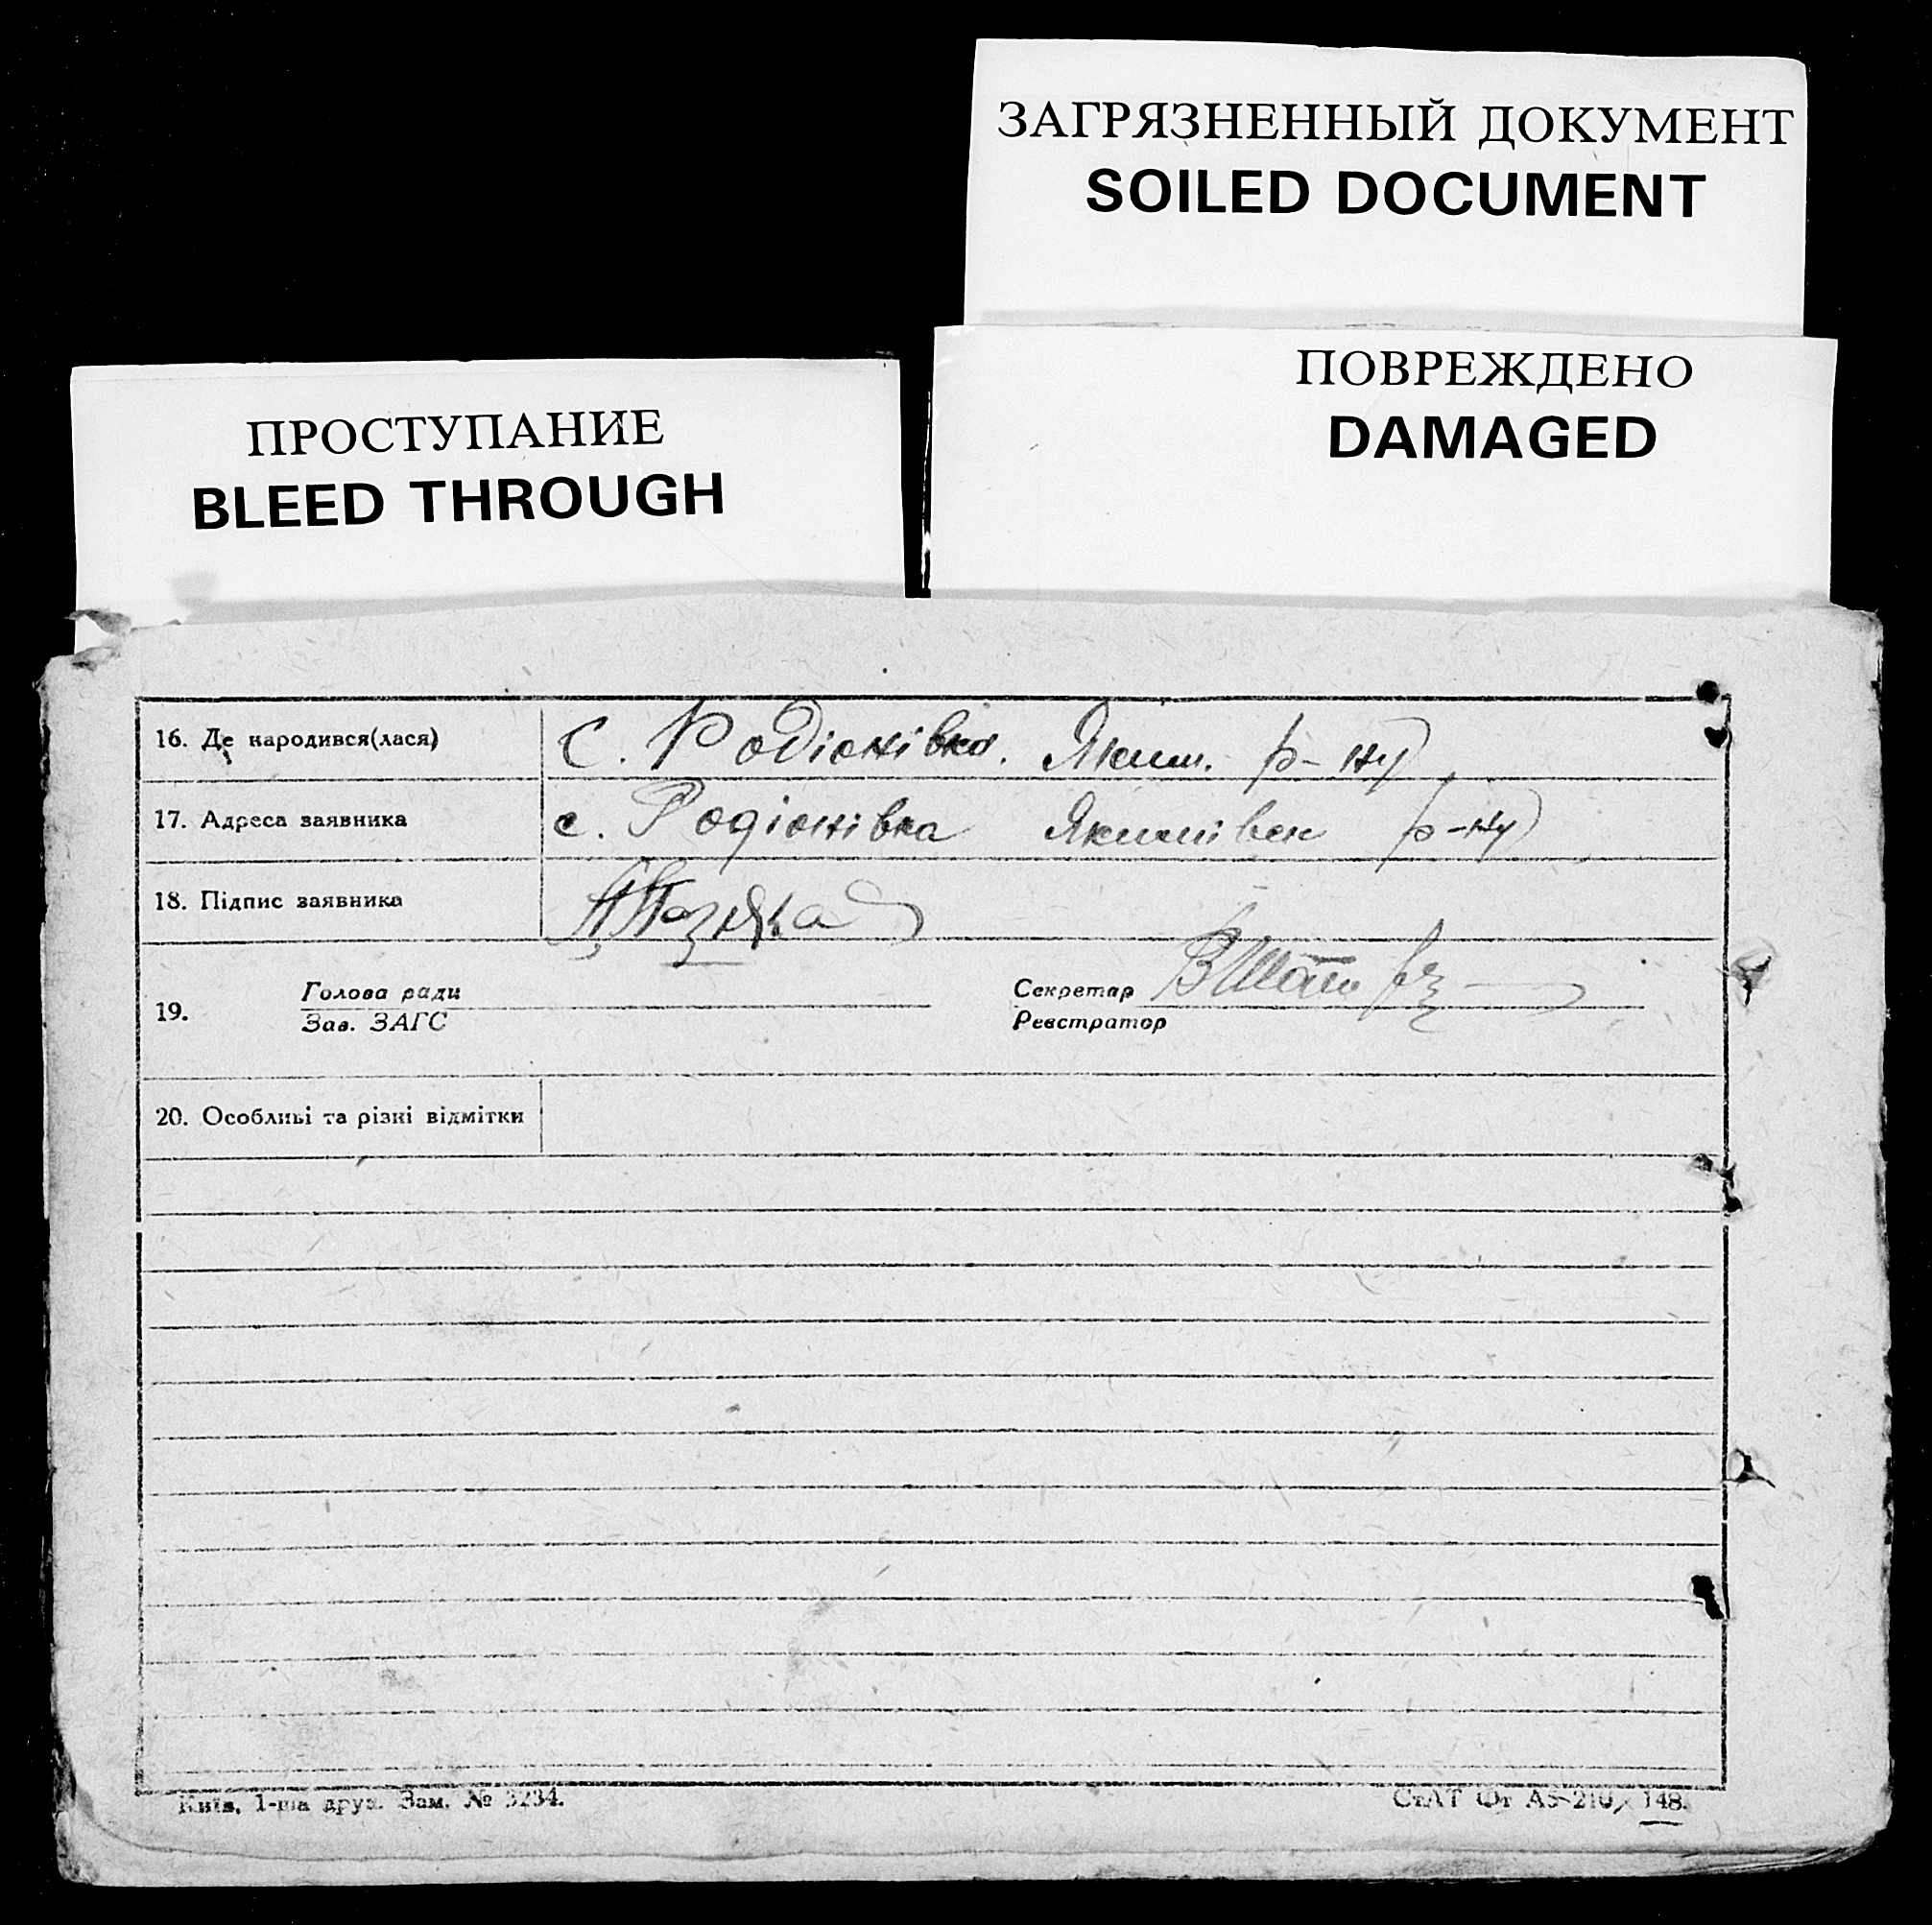 ЗАГРЯЗНЕННЫЙ ДОКУМЕНТ
SOILED DOCUMENT
ПОВРЕЖДЕНО
DAMAGED
ПРОСТУПАНИЕ
BLEED THROUGH
16. Де народився(лася) С. Родіонівка. Яким. р-ну
17. Адреса заявника с. Родіонівка Якимівськ р-ну
18. Підпис заявника
19. Голова ради
Зав. ЗАГС
Секретар
Реєстратор
20. Особливі та різні відмітки
Київ, 1-ша друк. Зам. № 3234.
СтАТ Фт А5-210 148.